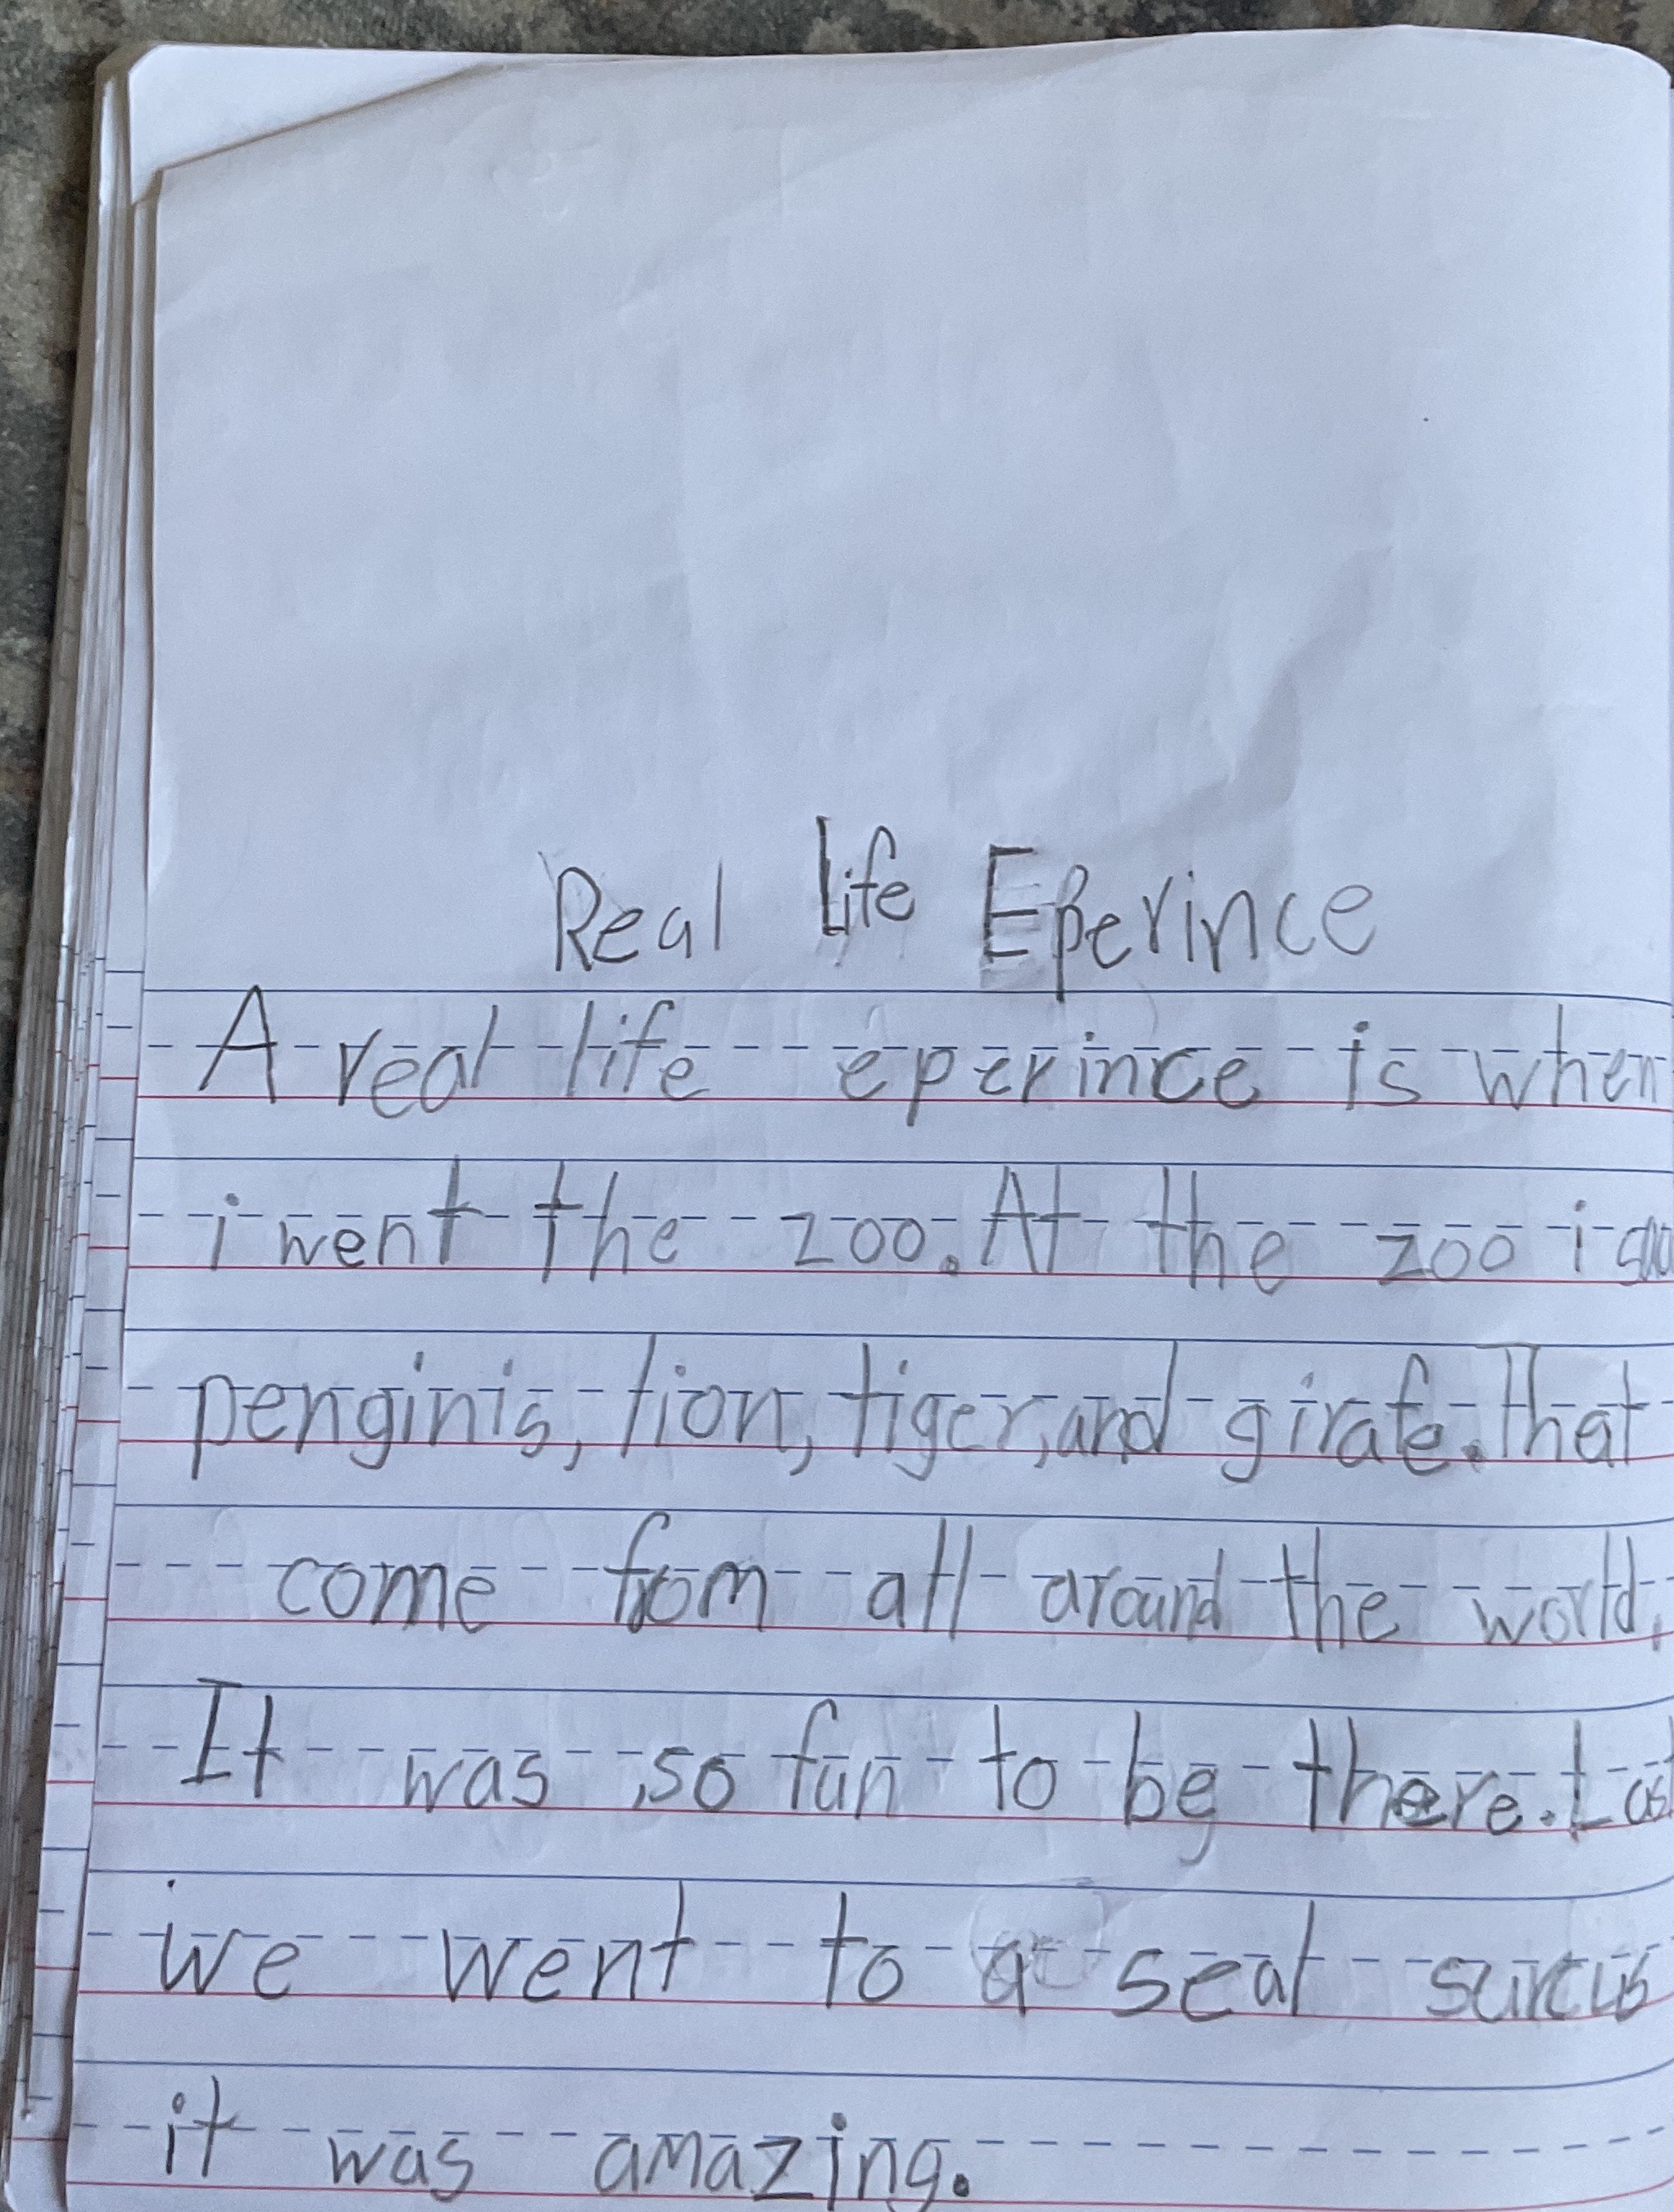 Real life Eperince
A real life eperince is when
i went the zoo. At the zoo i
penginis, lion, tiger, and girafe. That
come from all around the world.
It was so fun to be there.
we went to a seal surcus
it was amazing.